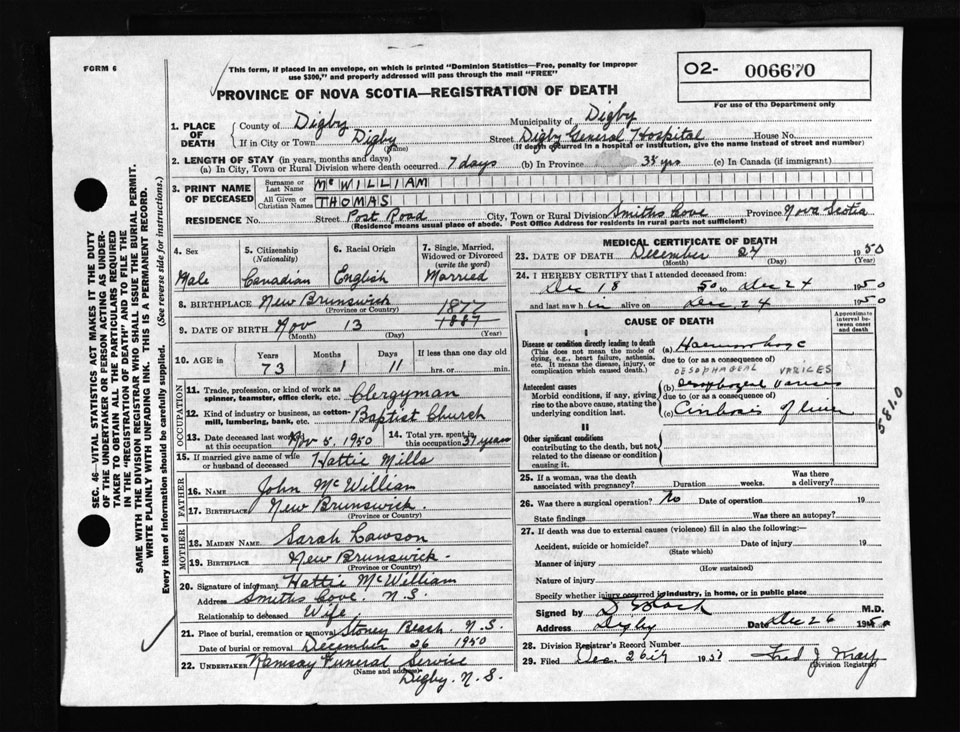 FORM 6
This form, if placed in an envelope, on which is printed "Dominion Statistics—Free, penalty for improper
use $300," and properly addressed will pass through the mail "FREE"
O2- 006670
For use of the Department only
PROVINCE OF NOVA SCOTIA—REGISTRATION OF DEATH
1. PLACE OF DEATH
County of Digby Municipality of Digby
If in City or Town Digby (Name) Street Digby General Hospital House No.
(If death occurred in a hospital or institution, give the name instead of street and number)
2. LENGTH OF STAY (in years, months and days)
(a) In City, Town or Rural Division where death occurred 7 days (b) In Province yrs (c) In Canada (if immigrant)
3. PRINT NAME OF DECEASED
Surname or Last Name McWILLIAM
All Given or Christian Names THOMAS
RESIDENCE No. Street Post Road City, Town or Rural Division Smiths Cove Province Nova Scotia
(Residence means usual place of abode. Post Office Address for residents in rural parts not sufficient)
4. Sex Male
5. Citizenship (Nationality) Canadian
6. Racial Origin English
7. Single, Married, Widowed or Divorced (write the word) Married
8. BIRTHPLACE New Brunswick
(Province or Country)
1877
9. DATE OF BIRTH Nov 13 1887
(Month) (Day) (Year)
10. AGE in Years 73 Months 1 Days 11 If less than one day old hrs. or min.
OCCUPATION
11. Trade, profession, or kind of work as spinner, teamster, office clerk, etc. Clergyman
12. Kind of industry or business, as cotton-mill, lumbering, bank, etc. Baptist Church
13. Date deceased last worked at this occupation Nov 5, 1950
14. Total yrs. spent in this occupation 37 years
15. If married give name of wife or husband of deceased Hattie Mills
FATHER
16. NAME John McWilliam
17. BIRTHPLACE New Brunswick.
(Province or Country)
MOTHER
18. MAIDEN NAME Sarah Lawson
19. BIRTHPLACE New Brunswick.
(Province or Country)
20. Signature of informant Hattie McWilliam
Address Smiths Cove. N.S.
Relationship to deceased Wife
21. Place of burial, cremation or removal Stoney Beach. N.S.
Date of burial or removal December 26 1950
22. UNDERTAKER Ramsay Funeral Service
(Name and address)
Digby. N.S.
MEDICAL CERTIFICATE OF DEATH
23. DATE OF DEATH December 1950
(Month) (Day) (Year)
24. I HEREBY CERTIFY that I attended deceased from
Dec 18 50 to Dec 24 1950
and last saw h im alive on Dec 24 1950
CAUSE OF DEATH
Approximate interval between onset and death
I
Disease or condition directly leading to death
(This does not mean the mode of dying, e.g., heart failure, asthenia, etc. It means the disease, injury, or complication which caused death.)
(a) Haemorrhage
due to (or as a consequence of)
OESOPHAGEAL VARICES
Antecedent causes
Morbid conditions, if any, giving rise to the above cause, stating the underlying condition last.
(b) oesophageal varices
due to (or as a consequence of)
(c) Cirrhosis of liver
581.0
II
Other significant conditions
contributing to the death, but not related to the disease or condition causing it.
25. If a woman, was the death associated with pregnancy? Duration weeks. Was there a delivery?
26. Was there a surgical operation? No Date of operation 19
State findings Was there an autopsy?
27. If death was due to external causes (violence) fill in also the following:—
Accident, suicide or homicide? Date of injury 19
(State which)
Manner of injury
(How sustained)
Nature of injury
Specify whether injury occurred in industry, in home, or in public place
Signed by M.D.
Address Digby Date Dec 26 1950
28. Division Registrar's Record Number
29. Filed Dec. 26th 195 Fred J. May
(Division Registrar)
SEC. 46—VITAL STATISTICS ACT MAKES IT THE DUTY
OF THE UNDERTAKER OR PERSON ACTING AS UNDER-
TAKER TO OBTAIN ALL THE PARTICULARS REQUIRED
IN THE "REGISTRATION OF DEATH" AND TO FILE THE
SAME WITH THE DIVISION REGISTRAR WHO SHALL ISSUE THE BURIAL PERMIT.
WRITE PLAINLY WITH UNFADING INK. THIS IS A PERMANENT RECORD.
Every item of information should be carefully supplied. (See reverse side for instructions.)